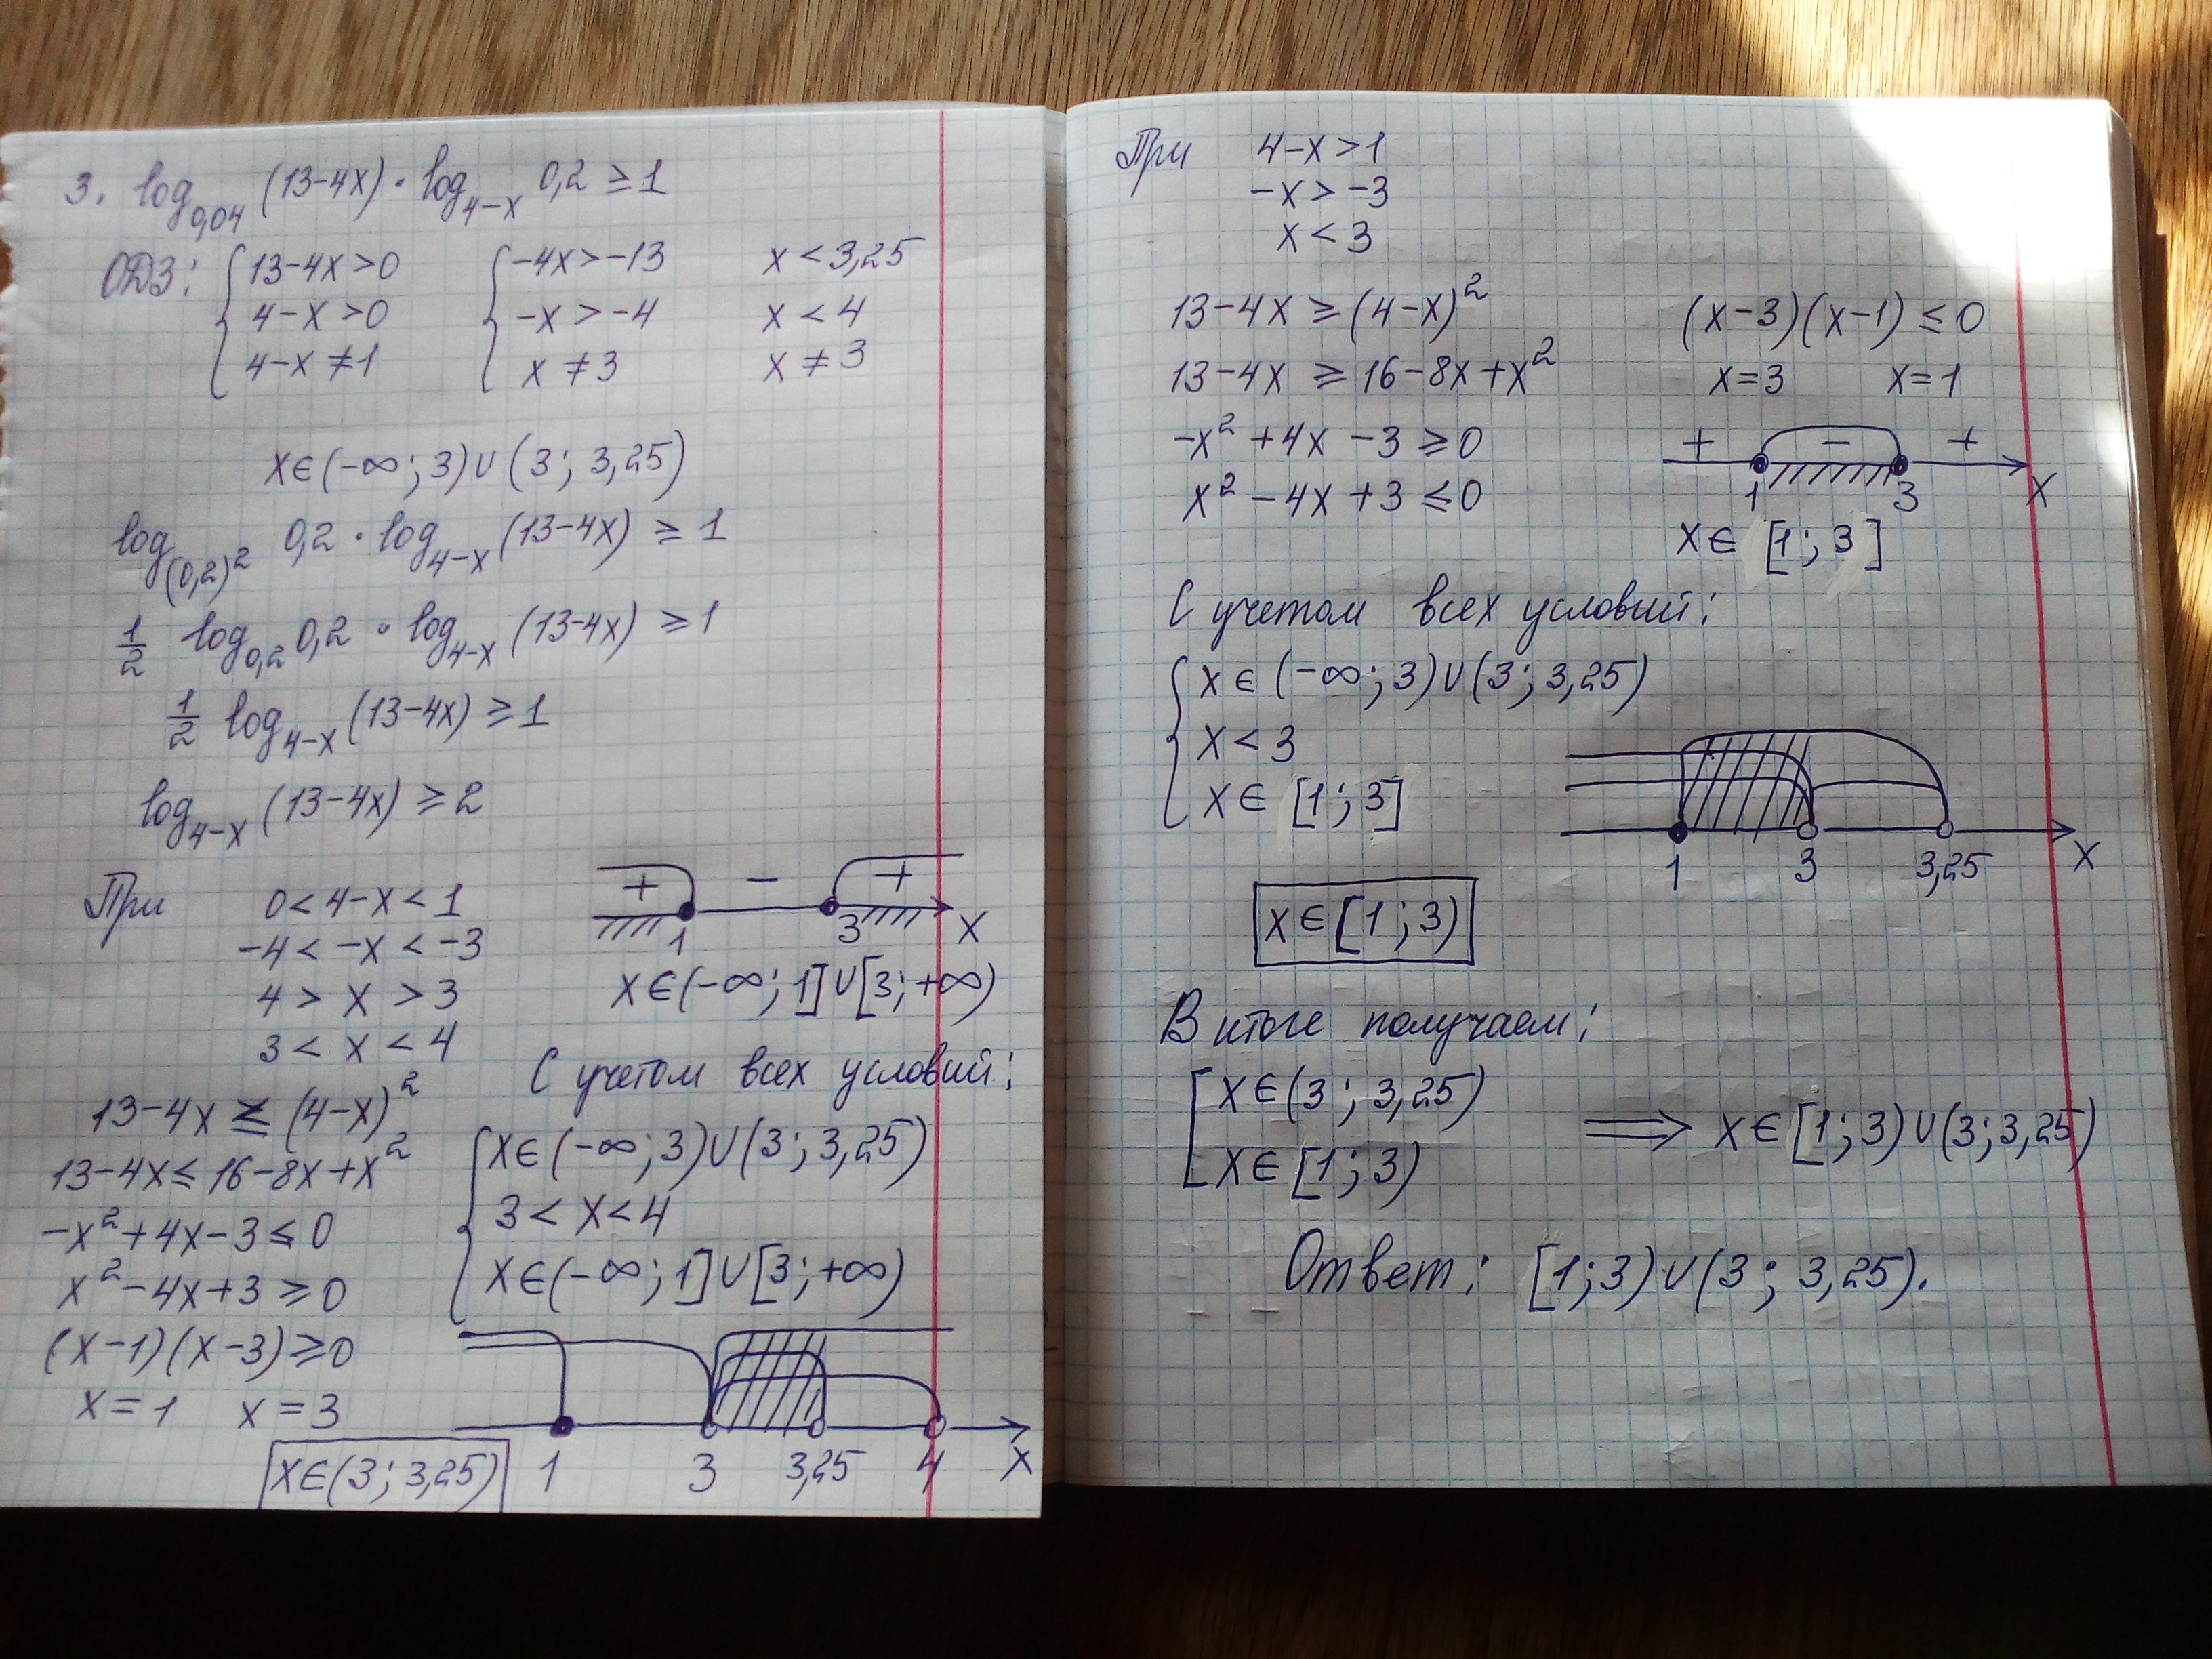 3. log₀,₀₄ (13-4x) · log₄₋ₓ 0,2 ≥ 1
ОДЗ: { 13-4x>0 { -4x>-13 x<3,25
4-x>0 -x>-4 x<4
4-x≠1 x≠3 x≠3
x∈(-∞; 3)∪(3; 3,25)
log_(0,2)² 0,2 · log₄₋ₓ (13-4x) ≥ 1
1/2 log₀,₂ 0,2 · log₄₋ₓ (13-4x) ≥ 1
1/2 log₄₋ₓ (13-4x) ≥ 1
log₄₋ₓ (13-4x) ≥ 2
При 0<4-x<1
-4<-x<-3
4>x>3
3<x<4
13-4x ≤ (4-x)²
13-4x ≤ 16-8x+x²
-x²+4x-3 ≤ 0
x²-4x+3 ≥ 0
(x-1)(x-3) ≥ 0
x=1 x=3
+ - +
1 3 x
x∈(-∞; 1]∪[3; +∞)
С учетом всех условий:
{ x∈(-∞; 3)∪(3; 3,25)
3<x<4
x∈(-∞; 1]∪[3; +∞)
1 3 3,25 4 x
x∈(3; 3,25)
При 4-x>1
-x>-3
x<3
13-4x ≥ (4-x)²
13-4x ≥ 16-8x+x²
-x²+4x-3 ≥ 0
x²-4x+3 ≤ 0
(x-3)(x-1) ≤ 0
x=3 x=1
+ - +
1 3 x
x∈[1; 3]
С учетом всех условий:
{ x∈(-∞; 3)∪(3; 3,25)
x<3
x∈[1; 3]
1 3 3,25 x
x∈[1; 3)
В итоге получаем:
[ x∈(3; 3,25)
x∈[1; 3)
⟹ x∈[1; 3)∪(3; 3,25)
Ответ: [1; 3)∪(3; 3,25).